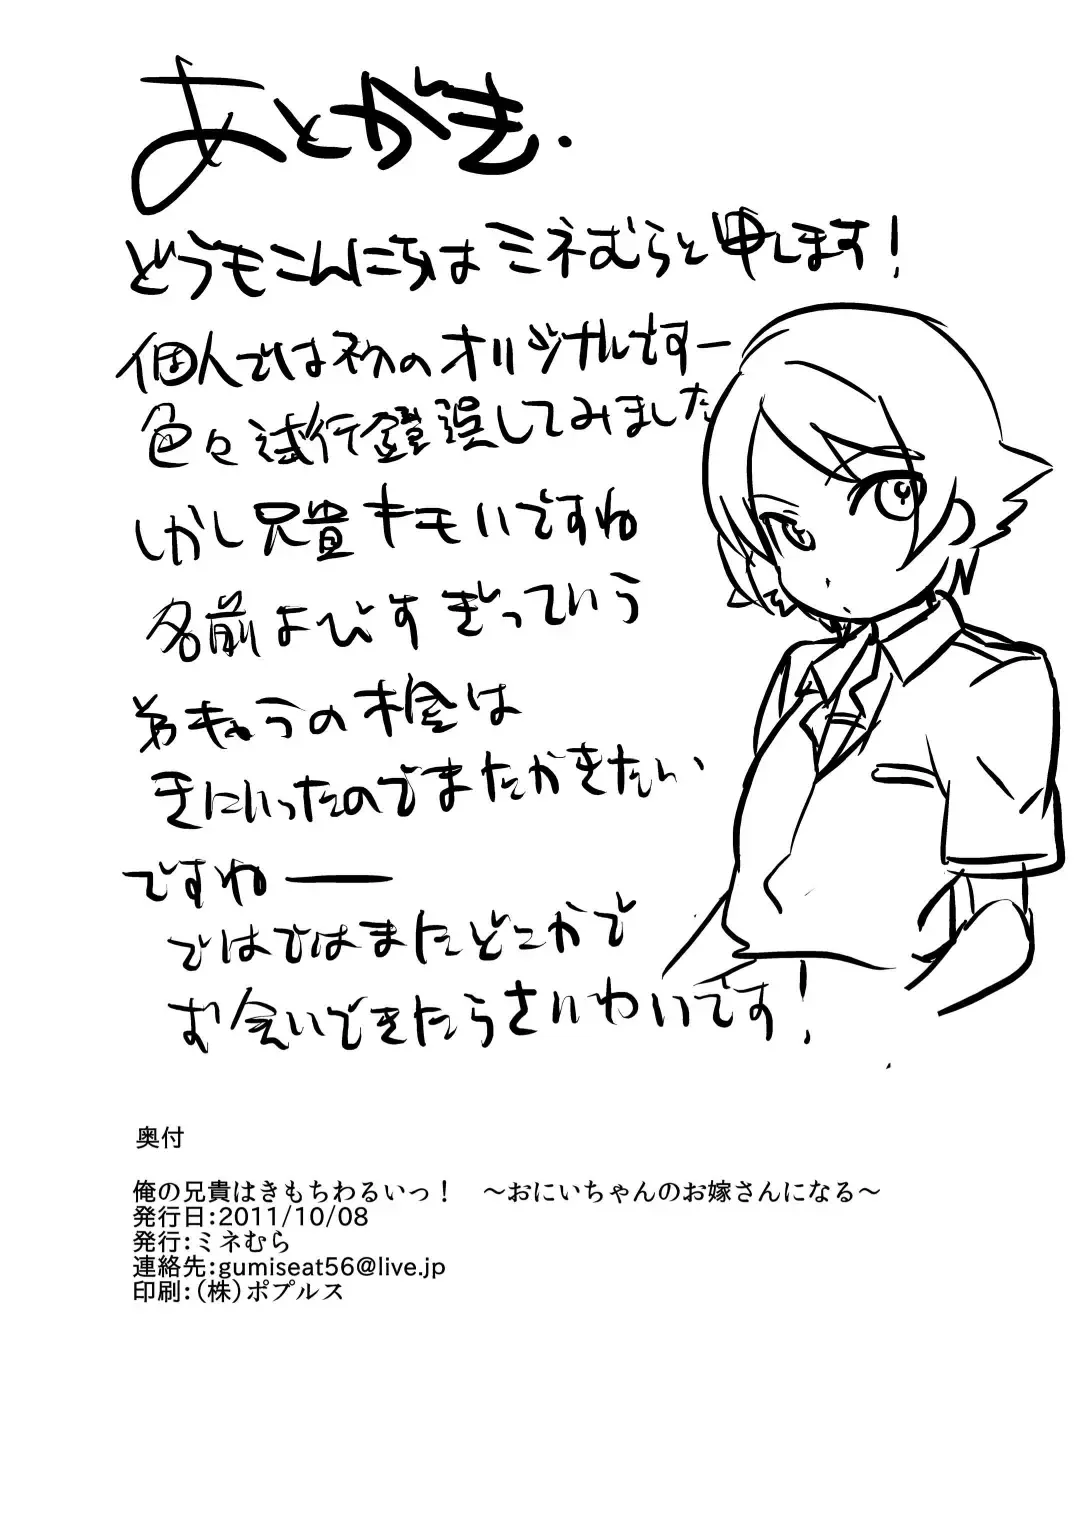 あとがき.
どうもこんにちは ミネむらと申します！
個人では初のオリジナルですー
色々試行錯誤してみました
しかし兄貴キモいですね
名前よびすぎっていう
弟きゅうの桧は
きにいったのでまたかきたい
ですねー
ではではまたどこかで
お会いできたらさいわいです！
奥付
俺の兄貴はきもちわるいっ！　～おにいちゃんのお嫁さんになる～
発行日：2011/10/08
発行：ミネむら
連絡先：gumiseat56@live.jp
印刷：（株）ポプルス